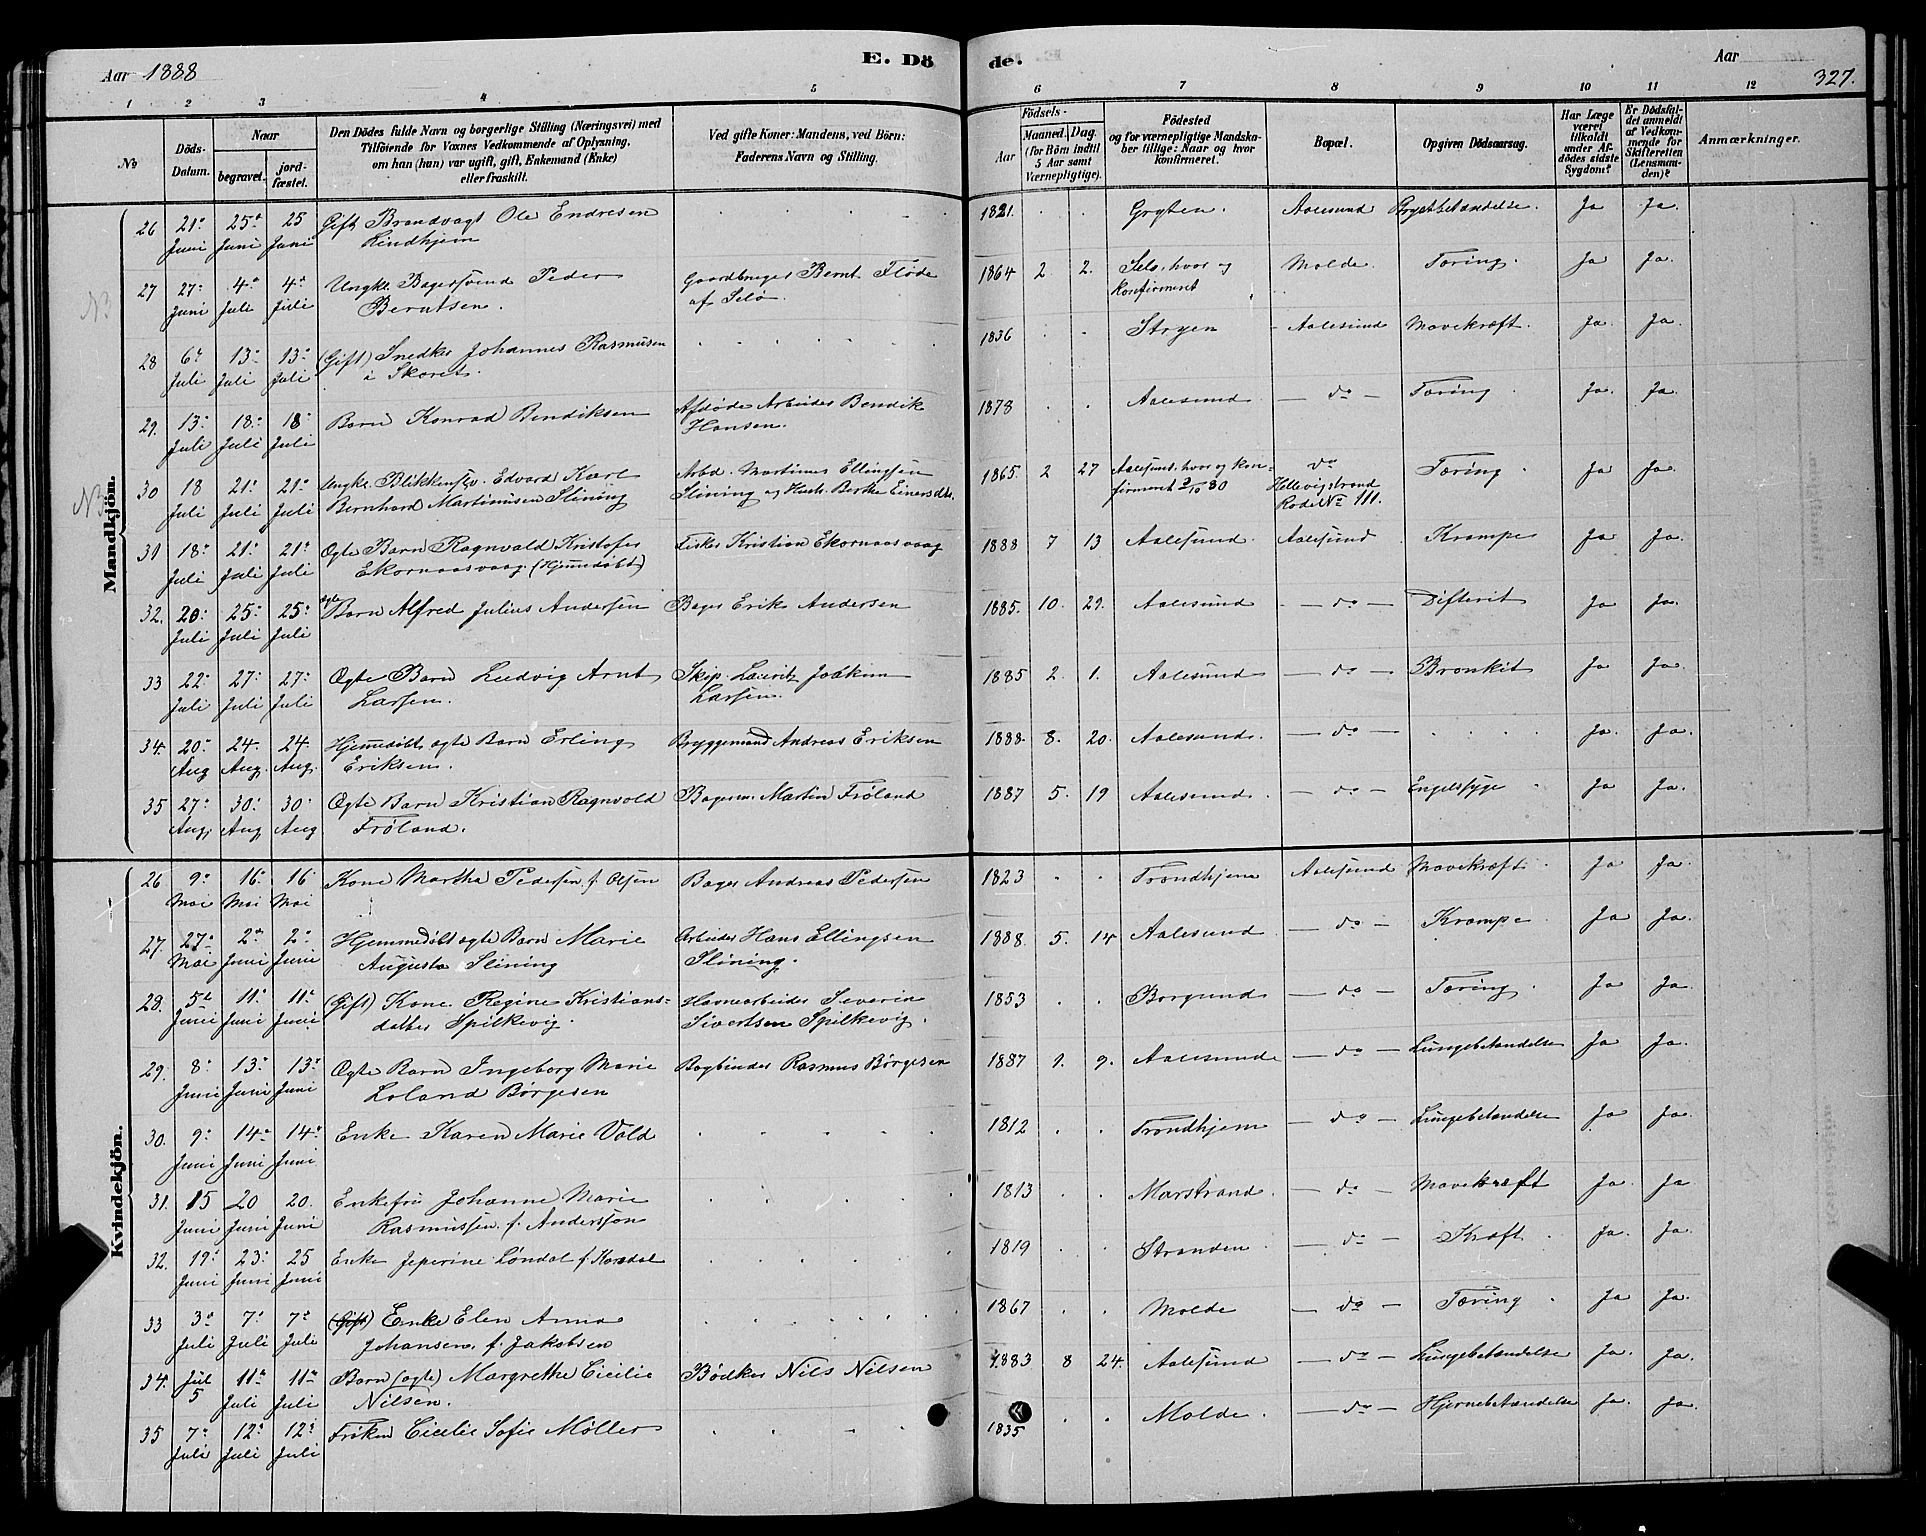 Aar 1888
E. Dö
de.
Aar
327.
1 2 3 4 5 6 7 8 9 10 11 12
No
Döds-Datum.
Naar
begravet.
jord-fæstet.
Den Dödes fulde Navn og borgerlige Stilling (Næringsvei) med
Tilföiende for Voxnes Vedkommende af Oplysning,
om han (hun) var ugift, gift, Enkemand (Enke)
eller fraskilt.
Ved gifte Koner: Mandens, ved Börn:
Faderens Navn og Stilling.
Födsels-
Aar
Maaned. Dag.
(for Börn indtil
5 Aar samt
Værnepligtige).
Födested
og for værnepligtige Mandska-
ber tillige: Naar og hvor
konfirmeret.
Bopæl.
Opgiven Dödsaarsag.
Har Læge
været
tilkaldt
under Af-
dödes sidste
Sygdom?
Er Dödsfal-
det anmeldt
af Vedkom-
mende for
Skifteretten
(Lensman-
den)?
Anmærkninger.
Mandkjön.
26 21de Juni 25de Juni 25 Juni Gift Brandvagt Ole Endresen
Lindhjem
1821. Gryten. Aalesund Brystbetændelse. Ja Ja.
NB
27 27de Juni 4de Juli 4de Juli Ungkl. Bagersvend Peder
Berntsen.
Gaardbruger Bernt Flöde
af Selö.
1864 2 2. Selö, hvor og
konfirmeret
Molde. Tæring. Ja Ja.
28 6te Juli 13de Juli 13de Juli (Gift) Snedker Johannes Rasmusen
i Skaret.
1836 Stryen Aalesund Mavekræft. Ja. Ja.
29. 13de Juli 18de Juli 18de Juli Barn Konrad Bendiksen
Afdøde Arbeider Bendik
Hansen.
1878 Aalesund — do — Tæring Ja. Ja.
NB
30 18 Juli 21de Juli 21de Juli Ungkl. Blikkensv. Edvard Karl
Bernhard Martinusen Slining
Arbd. Martinus Ellingsen
Slining og Hust. Berthe Einersdt.
1865. 2 27 Aalesund, hvor og kon-
firmeret 3/10 80
do
Hellevigstrand
Rode No 111.
Tæring Ja Ja.
31 18de Juli 21de Juli 21de Juli Ægte Barn Ragnvald Kristofer
Ekornaasvaag (Hjemmedøbt)
Fisker Kristian Ekornaasvaag
1888 7 13 Aalesund. Aalesund Krampe Ja Ja.
32. 20de Juli 25de Juli 25de Juli ægte Barn Alfred Julius Andersen
Bager Erik Andersen
1885. 10. 29. Aalesund — do — Difterit Ja Ja.
33 22de Juli 27de Juli 27de Juli Ægte Barn Ludvig Arnt
Larsen.
Skip. Lauritz Joakim
Larsen.
1885 2. 1. Aalesund — do — Bronkit Ja Ja.
34. 20de Aug 24. Aug. 24. Aug. Hjemmedøbt ægte Barn Erling
Eriksen.
Bryggemand Andreas Eriksen
1888. 8. 20. Aalesund. — do — Ja. Ja.
35 27de Aug. 30de Aug 30de Aug Ægte Barn Kristian Ragnvald
Frøland.
Bagersv. Martin Frøland
1887 5. 19 Aalesund. — do — Engelsksyge Ja Ja.
Kvindekjön.
26 9de Mai 16de Mai 16 Mai Kone Martha Pedersen f. Olsen
Bager Andreas Pedersen
1823 Trondhjem Aalesund Mavekræft Ja Ja.
27. 27de Mai 2den Juni 2den Juni Hjemmedøbt ægte Barn Marie
Augusta Slining
Arbeider Hans Ellingsen
Slining.
1888. 5. 14 Aalesund — do — Krampe Ja Ja.
28. 5te Juni 11te Juni 11te Juni (Gift) Kone Regine Kristians-
datter Spilkevig.
Havnearbeider Severin
Sivertsen Spilkevig.
1853 Borgund — do — Tæring Ja Ja.
29. 8de Juni 13de Juni 13de Juni Ægte Barn Ingeborg Marie
Loland Børgesen
Bogbinder Rasmus Børgesen
1887 1. 9. Aalesund — do — Lungebetændelse Ja Ja.
30. 9de Juni 14de Juni 14de Juni Enke Karen Marie Vold
1812 Trondhjem — do — Lungebetændelse Ja Ja.
31. 15 Juni 20 Juni 20. Juni Enkefru Johanne Marie
Rasmussen f. Anderson
1813 Marstrand. — do — Mavekræft Ja Ja
32. 19de Juni 23de Juni 25 Juni Enke Jeperine Løndal f. Korsdal
1819 Stranden — do — Kræft Ja. Ja.
33 3de Juli 7de Juli 7de Juli (Gift) Enke Elen Anna
Johansen. f. Jakobsen
1867 Molde — do — Tæring Ja Ja.
34. Juli 5 11te Juli 11te Juli Barn (ægte) Margrethe Cicilie
Nilsen.
Bødker Nils Nilsen
1883 8 24. Aalesund — do — Lungebetændelse Ja. Ja.
35 7de Juli 12te Juli 12te Juli Frøken Cicilie Sofie Møller
1835 Molde. — do — Hjernebetændelse Ja. Ja.